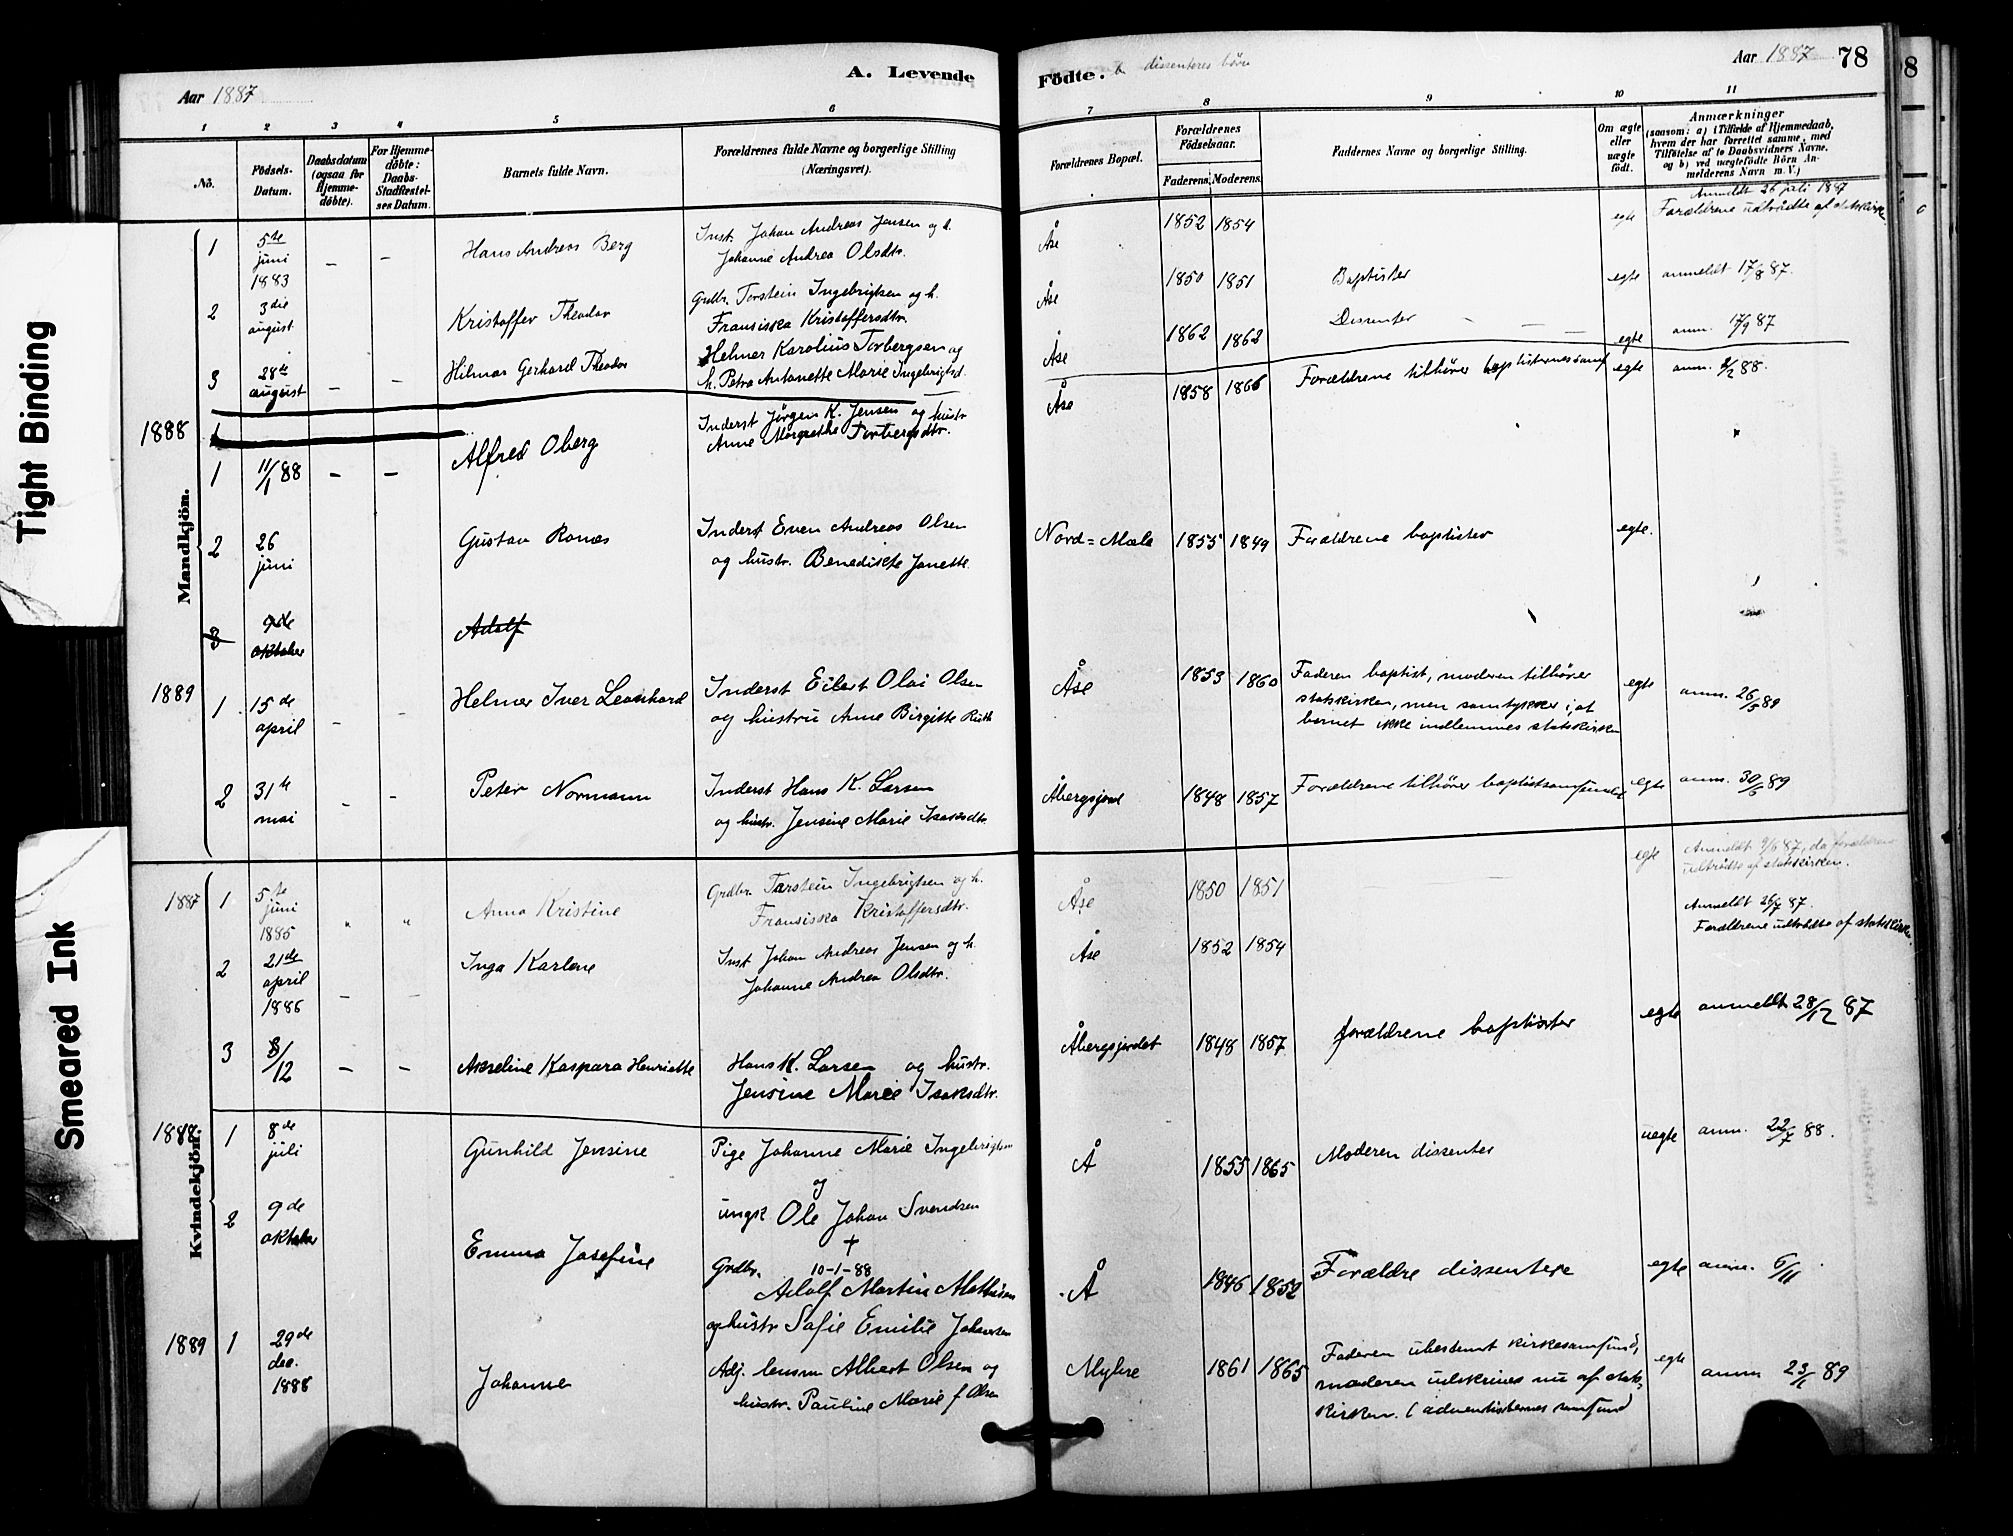 Tight Binding
Smeared Ink
Aar 1887
A. Levende
Födte.
dissenteres börn
Aar 1887
78
1 2 3 4 5 6 7 8 9 10 11
No.
Födsels-
Datum.
Daabsdatum
(ogsaa for
Hjemme-
döbte).
For Hjemme-
döbte:
Daabs-
Stadfæstel-
ses Datum.
Barnets fulde Navn.
Forældrenes fulde Navne og borgerlige Stilling
(Næringsvei).
Forældrenes Bopæl.
Forældrenes
Födselsaar.
Faderens. Moderens.
Faddernes Navne og borgerlige Stilling.
Om ægte
eller
uægte
födt.
Anmærkninger
(saasom: a) i Tilfælde af Hjemmedaab,
hvem der har forrettet samme, med
Tilföielse af to Daabsvidners Navne,
og b) ved uægtefödte Börn An-
melderens Navn m.V.)
Mandkjön.
1 5te juni 1883 – – Hans Andreas Berg
Inst. Johan Andreas Jensen og h.
Johanne Andrea Olsdtr.
Åse 1852 1854 egte
Anmeldt 26 juli 1887
Forældrene udtrådte af statskirk
2 3die august Kristoffer Theodor
Grdbr. Torstein Ingebrigtsen og h.
Fransiska Kristoffersdtr.
Åse 1850 1851 Baptister egte anmeldt 17/8 87.
3 28de august – – Hilmar Gerhard Theodor
Helmer Karolius Torbergsen og
h. Petra Antonette Marie Ingebrigtsd.
Åse 1862 1862 Dissenter – – – egte anm. 17/9 87
1888 1
1 11/1 88 – – Alfred Oberg
Inderst Jörgen K. Jensen og hustr.
Anne Margrethe Torbergsdtr.
Åse 1858 1866 Forældrene tilhörer baptisternes samf egte anm. 2/2 88.
2 26 juni Gustav Ronæs
Inderst Even Andreas Olsen
og hustr. Benedikte Janette
Nord=Mæla 1855 1849 Forældrene baptister egte.
3 9de oktober Adolf
1889 1 15de april – – Helmer Iver Leonhard
Inderst Eilert Olai Olsen
og hustru Anne Birgitte Ruth
Åse 1853 1860 Faderen baptist, moderen tilhörer
statskirken, men samtykker i, at
barnet ikke indlemmes statskirken
egte anm. 26/5 89
2 31te mai – – Peter Normann
Inderst Hans K. Larsen
og hustr. Jensine Marie Isaksdtr.
Åbergsjord 1848 1857 Forældrene tilhörer baptistsamfundet egte anm. 30/6 89
Kvindekjön.
1887 1 5te juni 1885 " " Anna Kristine
Grdbr. Torstein Ingebrigtsen og h.
Fransiska Kristoffersdtr.
Åse 1850 1851 egte
Anmeldt 87, da forældrene
udtrådte af statskirken.
2 21de april 1886 – – Inga Karlene
Inst. Johan Andreas Jensen og h.
Johanne Andrea Olsdtr.
Åse 1852 1854
Anmeldt 26/7 87.
Forældrene udtrådte af statskirken
3 8/12 – – Asseline Kaspara Henriette
Hans K. Larsen og hustr.
Jensine Marie Isaksdtr.
Åbergsjordet 1848 1857 forældrene baptister egte anmeldt 28/12 87
1888 1 8de juli Gunhild Jensine
Pige Johanne Marie Ingebrigtsen
og
ungk Ole Johan Svendsen
Å 1855 1865 Moderen dissenter uegte anm. 22/7 88.
2 9de oktober Emma Josefine
†
Grdbr. 10-1-88
Adolf Martin Mathisen
og hustr Sofie Emilie Johansen
Å 1846 1852 Forældre dissentere egte anm. 6/11.
1889 1 29de dec. 1888 Johanne
Adj. lensm Albert Olsen og
hustr. Pauline Marie f Olsen
Myhre 1861 1865 Faderen ubestemt kirkesamfund,
moderen udskrives nu af stats-
kirken. (adventisternes samfund)
egte anm 23/1 89